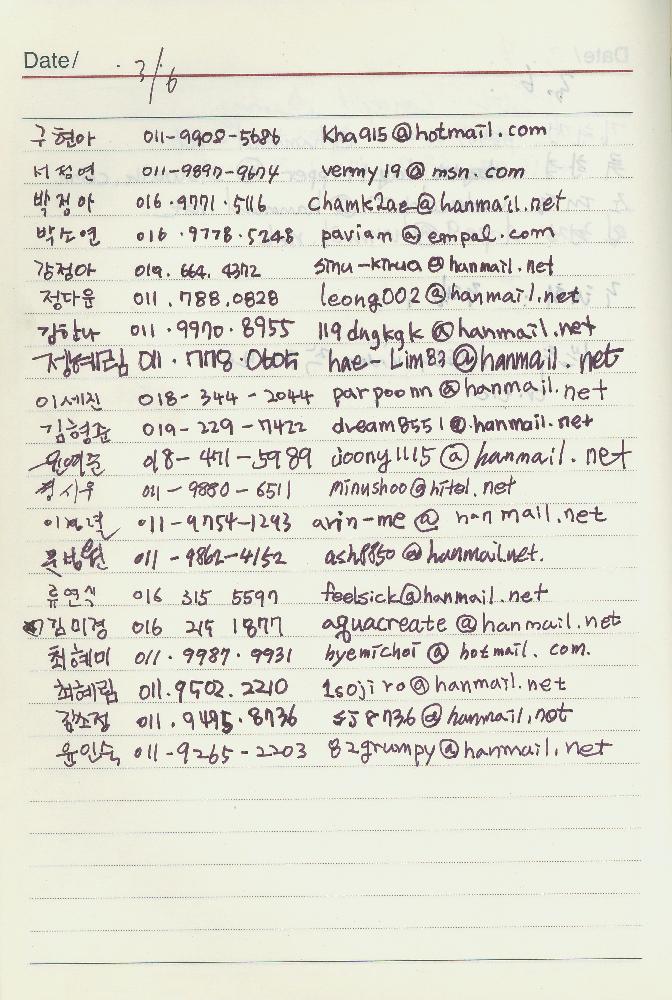 Date/ 3/6
구현아 011-9908-5686 kha915@hotmail.com
서점연 011-9897-9674 vemmy19@msn.com
박정아 016.9771.5116 chamk2ae@hanmail.net
박소연 016.9778.5248 paviam@empal.com
강정아 019.664.4372 @hanmail.net
정다운 011.788.0828 leong002@hanmail.net
김한나 011.9970.8955 119dngkgk@hanmail.net
정혜림 011.778.0605 hae-Lim83@hanmail.net
이세진 018-344-2044 parpoonn@hanmail.net
김형준 019-229-7422 dream8551@hanmail.net
018-471-5989 joony1115@hanmail.net
정시우 011-9880-6511 minushoo@hitel.net
011-9754-1293 arin-me@hanmail.net
011-9862-4152 ash8850@hanmail.net.
류연식 016 315 5597 feelsick@hanmail.net
김미경 016 215 1877 aquacreate@hanmail.net
최혜미 011.9987.9931 hyemichoi@hotmail.com.
최혜림 011.9502.2210 1sojiro@hanmail.net
김소정 011.9495.8736 sj8736@hanmail.net
윤인숙 011-9265-2203 82grumpy@hanmail.net